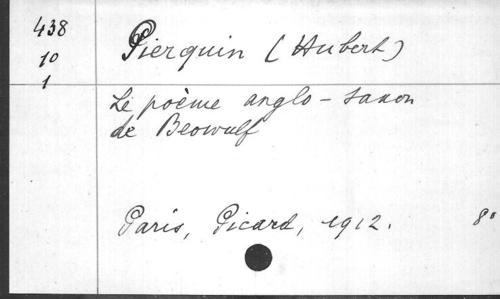 438
10
1
Pierquin (Hubert)
Le poème anglo-saxon
de Beowulf
Paris, Picard, 1912. 8°